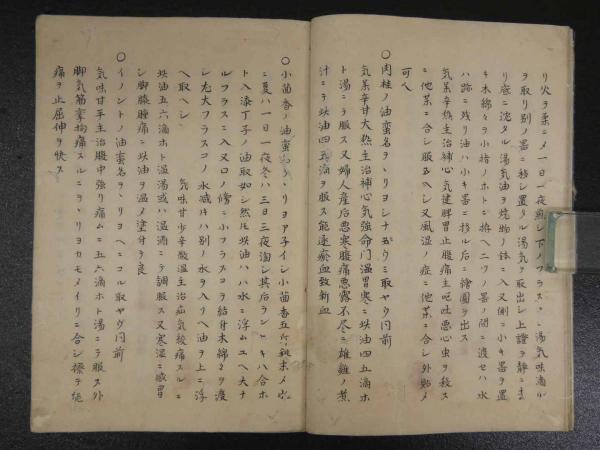 リ火ヲ柔ニメ一日一夜煎シ下ノフラスコニ湯気味滴ル
ヲ取リ別ノ器ニ移シ置タル湯気ヲ取出シ上澄ヲ静ニ
リ底ニ沈タル湯気油ヲ焼物ノ鉢ニ入又側ニ小キ器ヲ置
キ木綿ヲ小指ノホトニ拵ヘ二ツノ器ノ間ニ渡セハ水
ハ跡ニ残リ油ハ小キ器ニ移ル后ニ繪圖ヲ出ス
気味辛熱主治補心気健脾胃止腹痛主吃吐悪心虫ヲ殺ス
ニ他茶ニ合シ服スヘシ又風湿ノ症ニ他茶ニ合シ外貼メ
可ヘ
〇肉桂ノ油蛮名ヲ、リヨシナ取ヤウ同前
気味辛甘大熱主治補心気強命門温胃寒ニ此油四五滴ホ
ト湯ニテ服ス又婦人産后悪寒腹痛悪露不尽ニ雄雞ノ煮
汁ニテ此油四五滴ヲ服ス能逐瘀血致新血
〇小茴香ノ油蛮名ヲ、リヨアネイシ小茴香五斤粗末メ水
ニ夏ハ一日一夜冬ハ三日三夜淘シ其后ランビキハ合ホ
ト入漆丁子ノ油取如シ然圧此油ハハ水ニ浮ムユヘ大ナ
ルフラスコニ入又口ノ傍ニ小フラスコヲ結付木綿ヲ渡
シ尤大フラスコノ水減片ハ別ノ水ヲ入リヘ油ヲ上ニ浮
ヘ取ヘシ
気味甘少辛微温主治疝気疼痛スルニ
此油五六滴ホト温湯或ハ温酒ニテ調服ス又寒湿ニ感冒
シ脚膝腫痛ニ此油ヲ温メ塗付テ良
〇イノントノ油蛮名ヲ、リヨヘニコル取ヤウ同前
気味甘平主治腹中強リ痛ムニ五六滴ホト湯ニテ服ス外
脚気筋攣拘痛スルニヲ、リヨカモメイリニ合シ擦テ能
痛ヲ止屈伸ヲ快ス